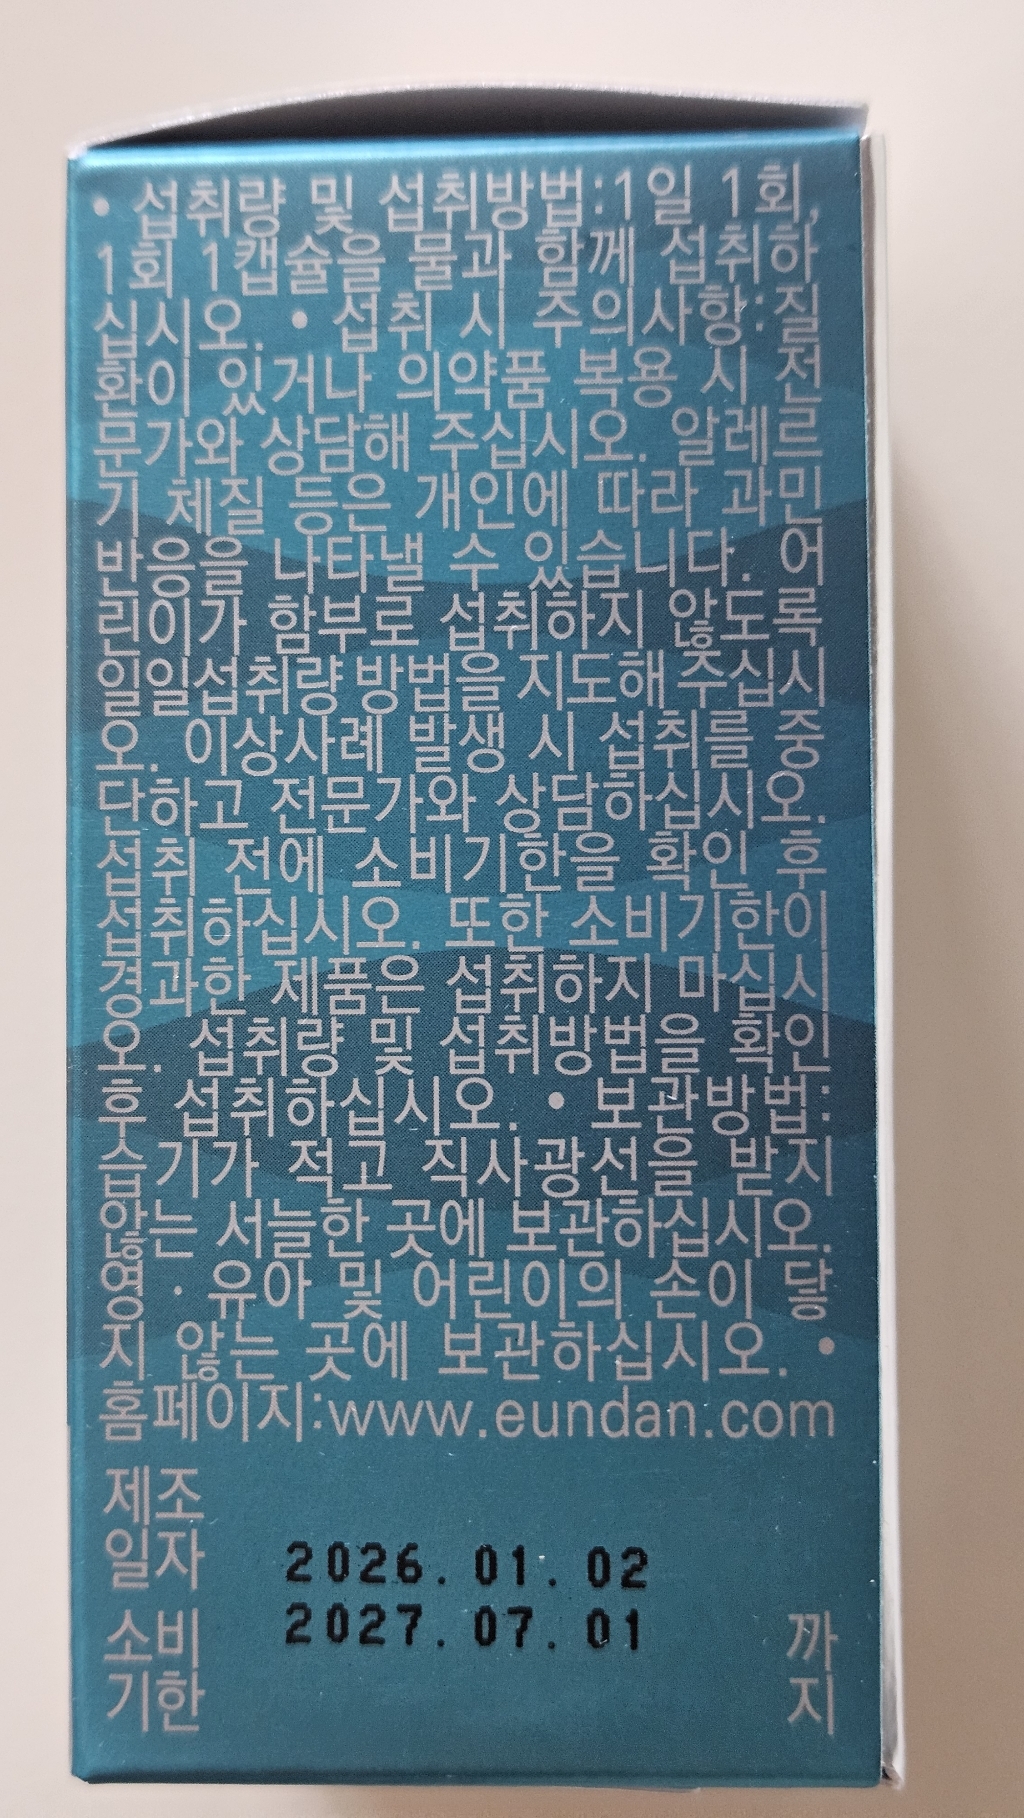 • 섭취량 및 섭취방법:1일 1회,
1회 1캡슐을 물과 함께 섭취하
십시오. • 섭취 시 주의사항:질
환이 있거나 의약품 복용 시 전
문가와 상담해 주십시오. 알레르
기 체질 등은 개인에 따라 과민
반응을 나타낼 수 있습니다. 어
린이가 함부로 섭취하지 않도록
일일섭취량 방법을 지도해 주십시
오. 이상사례 발생 시 섭취를 중
단하고 전문가와 상담하십시오.
섭취 전에 소비기한을 확인 후
섭취하십시오. 또한 소비기한이
경과한 제품은 섭취하지 마십시
오. 섭취량 및 섭취방법을 확인
후 섭취하십시오. • 보관방법:
습기가 적고 직사광선을 받지
않는 서늘한 곳에 보관하십시오.
영·유아 및 어린이의 손이 닿
지 않는 곳에 보관하십시오. •
홈페이지:www.eundan.com
제조
일자 2026.01.02
소비 2027.07.01 까
기한 지